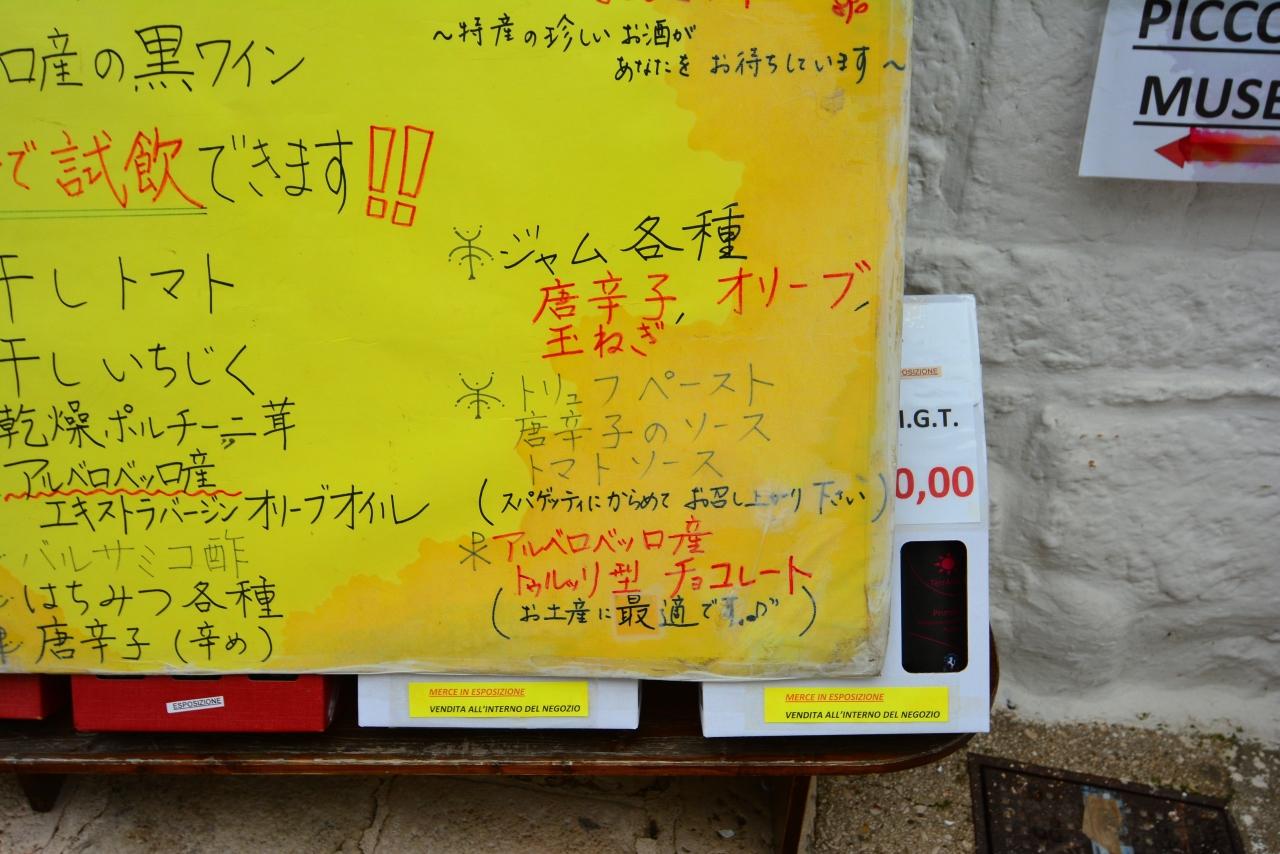 ～特産の珍しいお酒が
あなたを お待ちしています～
ロ産の黒ワイン
で試飲できます!!
干しトマト
干しいちじく
乾燥ポルチーニ茸
アルベロベッロ産
エキストラバージンオリーブオイル
バルサミコ酢
はちみつ各種
唐辛子(辛め)
ジャム各種
唐辛子, オリーブ,
玉ねぎ
トリュフペースト
唐辛子のソース
トマトソース
(スパゲッティにからめて お召し上がり下さい)
アルベロベッロ産
トゥルッリ型 チョコレート
(お土産に最適です♫)
PICCO
MUSE
OSIZIONE
I.G.T.
0,00
ESPOSIZIONE
MERCE IN ESPOSIZIONE
VENDITA ALL'INTERNO DEL NEGOZIO
MERCE IN ESPOSIZIONE
VENDITA ALL'INTERNO DEL NEGOZIO